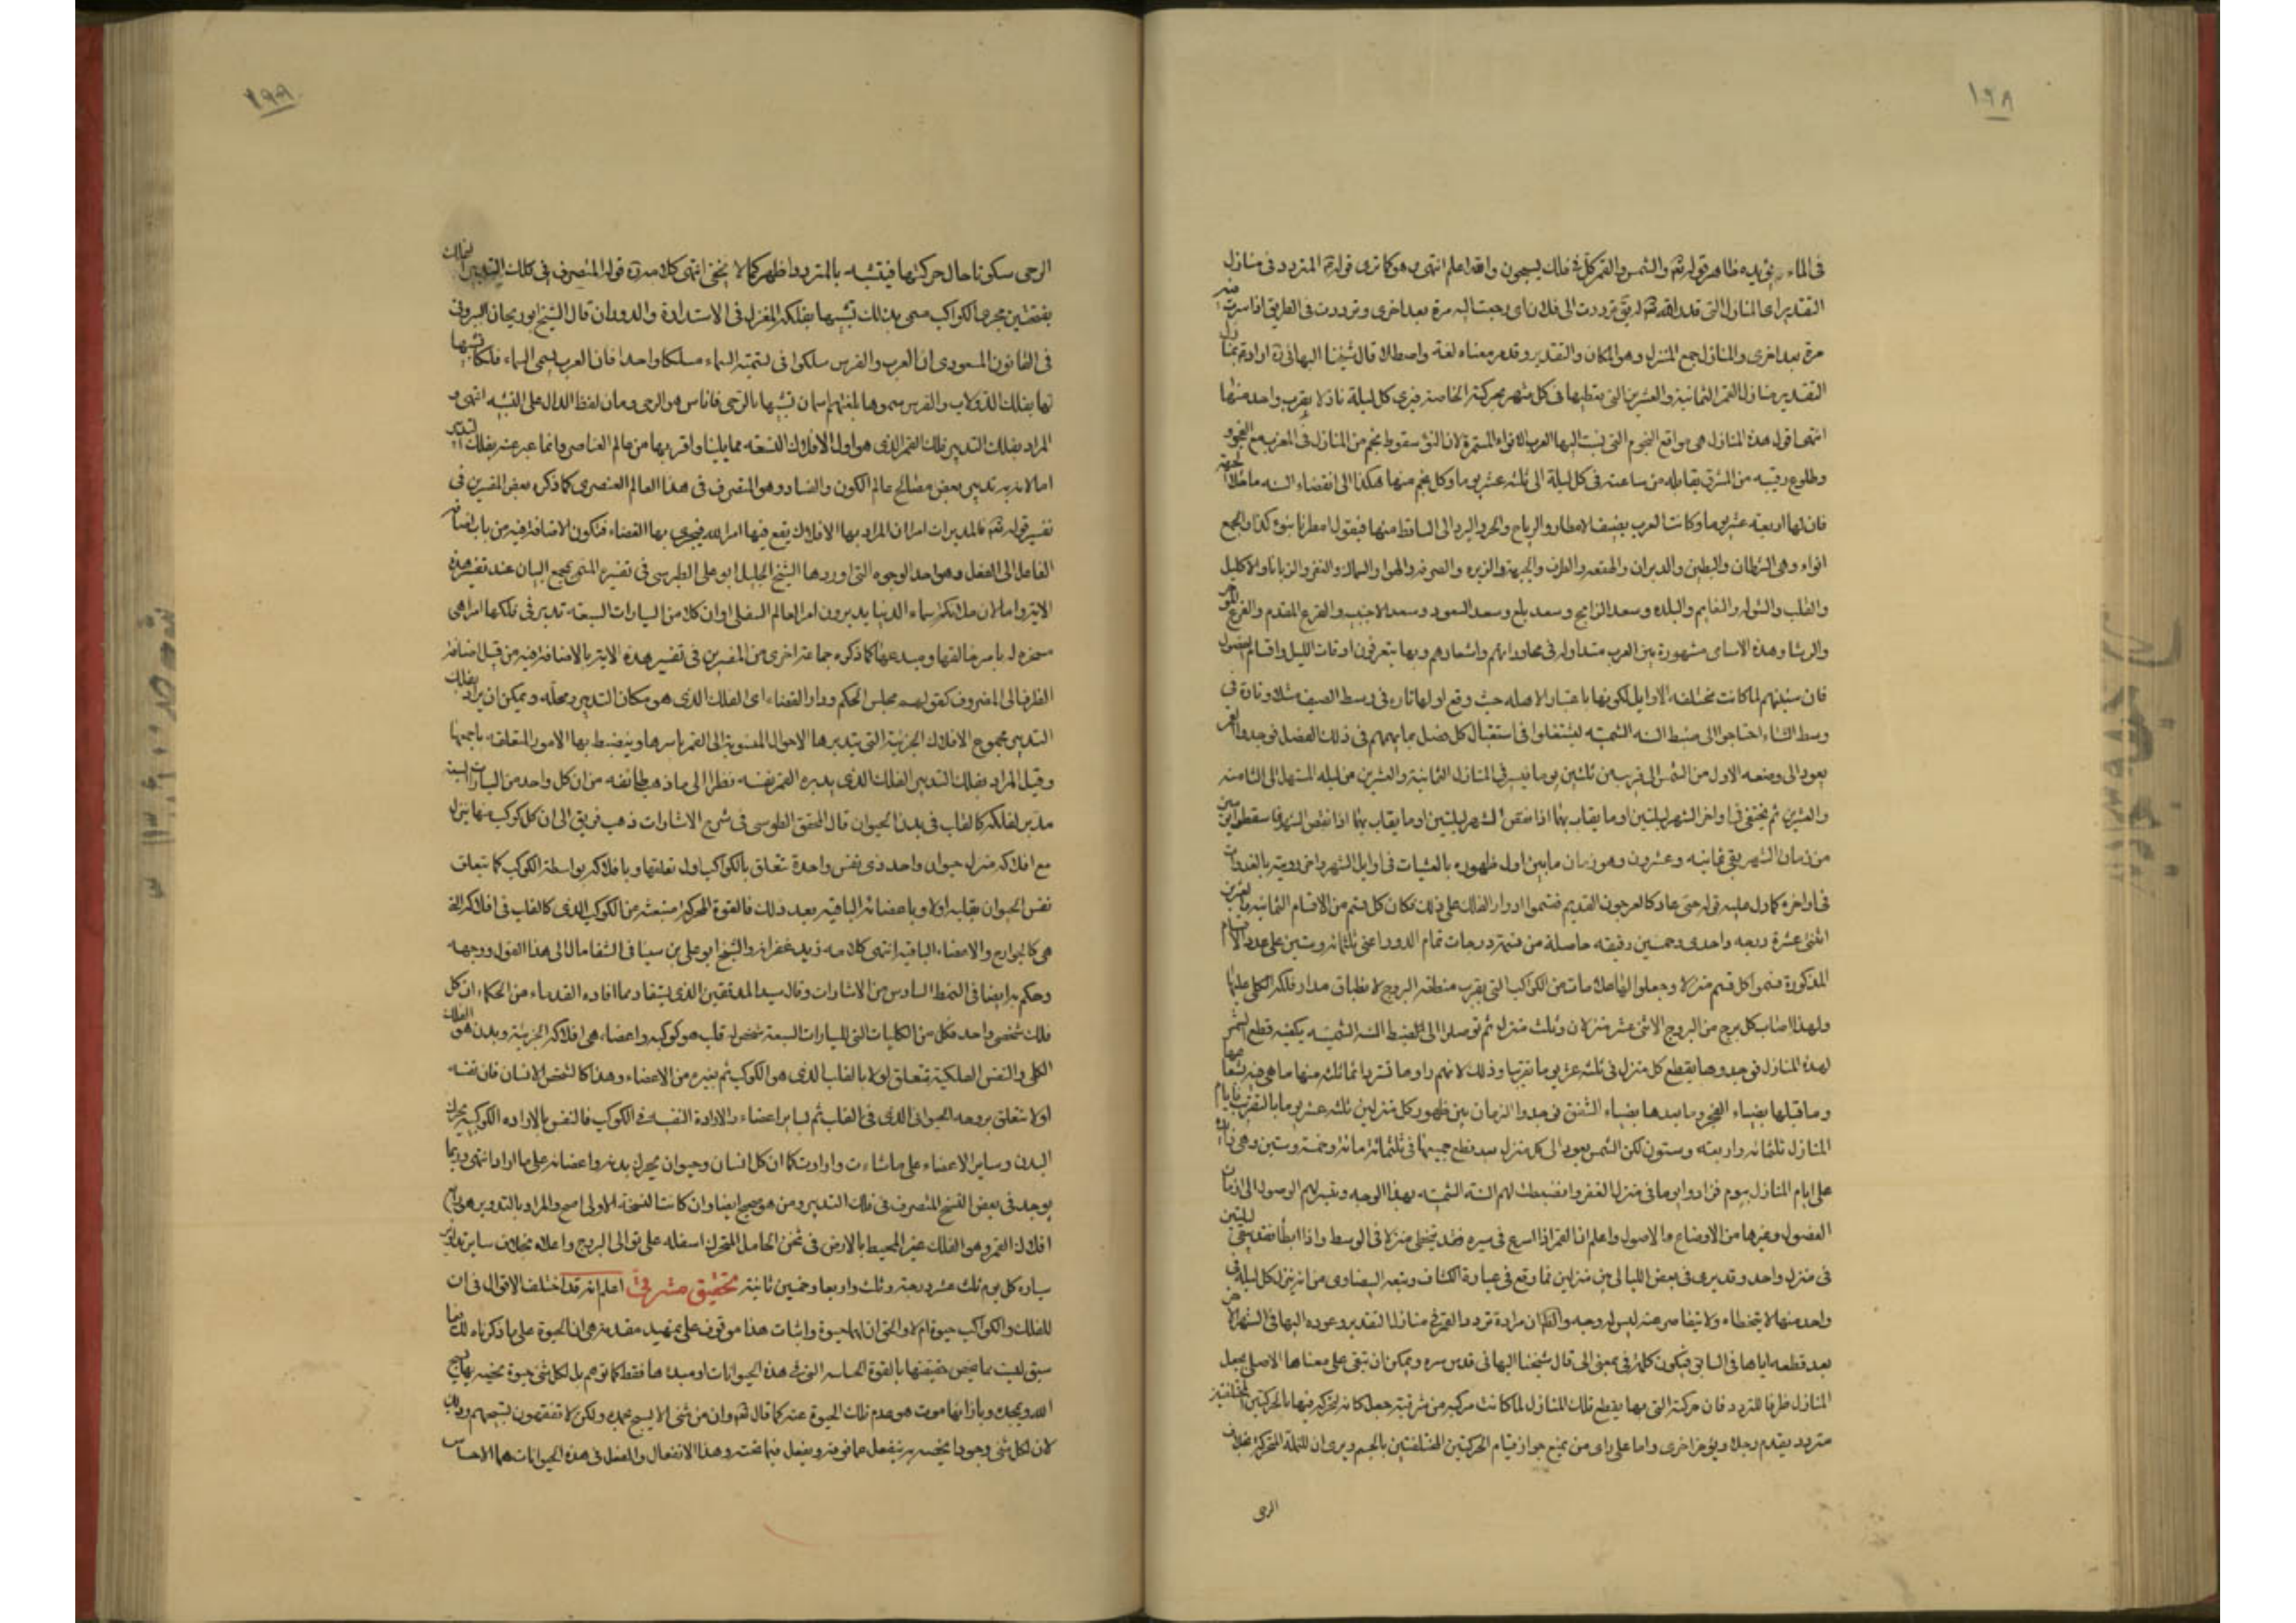 ١٩٨
في الماء يؤيده ظاهر قوله تعالى والشمس والقمر كل في فلك يسبحون والله اعلم انتهى وهو كما ترى قوله المتردد في منازل
التقدير اي المنازل التي قدر الله له يق ترددت الى فلان اي رجعت اليه مرة بعد اخرى وترددت في الطريق اذا سرت فيه
مرة بعد اخرى والمنازل جمع المنزل وهو المكان والتقدير وقد مر معناه لغة واصطلاحا قال شيخنا البهائي ره اراد بمنازل
التقدير منازل القمر الثمانية والعشرين التي يقطعها في كل شهر بحركته الخاصة فيرى كل ليلة نازلا بقرب واحد منها
انتهى اقول هذه المنازل هي مواقع النجوم التي نسبت اليها العرب الانواء المستمرة لان النوء سقوط نجم من المنازل في المغرب مع الفجر و
وطلوع رقيبه من المشرق يقابله من ساعته في كل ليلة الى ثلثة عشر يوما وكل نجم منها هكذا الى انقضاء السنة ما خلا الجبهة
فان لها اربعة عشر يوما وكانت العرب يضيف الامطار والرياح والحر والبرد الى الساقط منها فيقول امطرنا بنوء كذا والجمع
انواء وهي الشرطان والبطين والدبران والهقعه والطرف والجبهة والزبره والصرفه والعوا والسماك والغفر والزبانا والاكليل
والقلب والشوله والنعايم والبلده وسعد الذابح وسعد بلع وسعد السعود وسعد الاخبيه والفرغ المقدم والفرغ المؤخر
والرشا وهذه الاسامي مشهورة بين العرب متداوله في محاوراتهم واشعارهم وبها يتعرفون اوقات الليل واقسام الفصول
فان سنيهم لما كانت مختلفه الاوايل لكونها باعتبار الاهله حيث وقع اولها تاره في وسط الصيف مثلا وتارة في
وسط الشتاء احتاجوا الى ضبط السنه الشمسيه ليشتغلوا في استقبال كل فصل بما يهمهم في ذلك الفصل فوجدوا القمر
يعود الى وضعه الاول من الشمس الى قريب من ثلثين يوما فيسير في المنازل الثمانية والعشرين من ليله المستهل الى الثامنه
والعشرين ثم يختفي في اواخر الشهر لليلتين او ما يقاربهما
من زمان الشهر بقي ثمانيه وعشرون وهو زمان ما بين اول ظهوره بالعشيات في اوايل الشهر واخر رويته بالغدوات
في اواخره كما دل عليه قوله حتى عاد كالعرجون القديم فقسموا ادوار الفلك على ذلك فكان كل قسم من الاقسام الثمانيه والعشرين
اثنتي عشرة درجه واحدى وخمسين دقيقه حاصلة من قسمة درجات تمام الدور اعني ثلثمائه وستين على عدد الاقسام
المذكورة فسموا كل قسم منزلا وجعلوا لها علامات من الكواكب التي بقرب منطقه البروج لانطباق مدار فلكه الكلي عليها
ولهذا اصاب كل برج من البروج الاثني عشر منزلان وثلث منزل ثم توصلوا الى ضبط السنه الشمسيه بكيفيه قطع الشمس
لهذه المنازل فوجدوها يقطع كل منزل في ثلثه عشر يوما تقريبا وذلك لانهم راوها تستر دائما ثلثه منها ما هي فيه بشعاعها
وما قبلها بضياء الفجر وما بعدها بضياء الشفق فوجدوا الزمان بين ظهور كل منزلين ثلثه عشر يوما بالتقريب فايام
المنازل ثلثمائه واربعه وستون لكن الشمس يعود الى كل منزل بعد قطع جميعها في ثلثمائة وخمسة وستين وهي زائدة
على ايام المنازل بيوم فزادوا يوما في منزل الغفر وانضبطت لهم السنه الشمسيه بهذا الوجه وتيسر لهم الوصول الى ازمان
الفصول وغيرها من الاوضاع والاصول واعلم ان القمر اذا اسرع في سيره فقد يتخطى منزلا في الوسط واذا ابطأ فقد يبقى ليلتين
في منزل واحد وقد يرى في بعض الليالي بين منزلين فما وقع في عبارة الكشاف وتبعه البيضاوي من انه ينزل كل ليلة في
واحد منها لا يتخطاه ولا يتقاصر عنه ليس له وجه والظ ان مراده تردد القمر في منازل التقدير وعوده اليها في الشهر الاخر
بعد قطعه اياها في السابق فيكون كلمة في بمعنى الى قال شيخنا البهائي قدس سره ويمكن ان تبقى على معناها الاصلي بجعل
المنازل ظرفا للتردد فان حركته التي بها يقطع تلك المنازل لما كانت مركبه من شرقيه جعل كانه لتحركه فيها بالحركتين المختلفتين
متردد يقدم رجلا ويؤخر اخرى واما على راى من يمنع جواز قيام الحركتين المختلفتين بالجسم ويرى ان للنملة المتحركة بخلاف
الرحى
١٩٩
الرحى سكونا حال حركتها فيشبه بالمتردد اظهر كما لا يخفى انتهى كلامه ره قوله المتصرف في فلك التدبير الفلك
بفتحتين مجرى الكواكب سمى بذلك تشبيها بفلكه المغزل في الاستدارة والدوران قال الشيخ ابو ريحان البيروني
في القانون المسعودي ان العرب والفرس سلكوا في تسمية السماء مسلكا واحدا فان العرب يسمى السماء فلكا تشبيها
لها بفلك الدولاب والفرس سموها بلغتهم اسمان تشبيها بالرحى فان اس هو الرحى ومان لفظ الدال على الشبه انتهى و
المراد بفلك التدبير فلك القمر الذي هو اول الافلاك التسعه مما يلينا واقربها من عالم العناصر وانما عبر عنه بفلك التدبير
اما لان به تدبير بعض مصالح عالم الكون والفساد وهو المتصرف في هذا العالم العنصري كما ذكره بعض المفسرين في
تفسير قوله تعالى فالمدبرات امرا ان المراد بها الافلاك يقع فيها امر الله فيجري بها القضاء فتكون الاضافة فيه من باب اضافة
الفاعل الى الفعل وهو احد الوجوه التي اوردها الشيخ الجليل ابو علي الطبرسي في تفسيره المسمى بمجمع البيان عند تفسير هذه
الايه واما لان ملائكه سماء الدنيا يدبرون امر العالم السفلي او ان كلا من السيارات السبعه تدبر في فلكها امرا هي
مسخره له بامر خالقها ومبدعها كما ذكره جماعة اخرى من المفسرين في تفسير هذه الايه بالاضافه فيه من قبيل اضافة
الظرف الى المظروف كقولهم مجلس الحكم ودار القضاء اى الفلك الذي هو مكان التدبير ومحله ويمكن ان يراد بفلك
التدبير مجموع الافلاك الجزئية التي يتدبر بها الاحوال المنسوبة الى القمر باسرها وينضبط بها الامور المتعلقه باجمعها
وقيل المراد بفلك التدبير الفلك الذي يدبره القمر بنفسه نظرا الى ما ذهب طائفه من ان كل واحد من السيارات السبعة
مدبر لفلكه كالقلب في بدن الحيوان قال المحقق الطوسي في شرح الاشارات ذهب فريق الى ان كل كوكب منها ينزل
مع افلاكه منزل حيوان واحد ذي نفس واحدة تتعلق بالكواكب اول تعلقها وبافلاكه بواسطة الكوكب كما تتعلق
نفس الحيوان بقلبه اولا وباعضائه الباقيه بعد ذلك فالقوة المحركة منبعثة عن الكوكب الذي كالقلب في افلاكه التي
هي كالجوارح والاعضاء الباقيه انتهى كلامه زيد غفرانه والشيخ ابو علي بن سينا في الشفا مال الى هذا القول ورجحه
وحكم به ايضا في النمط السادس من الاشارات وقال سيد المدققين الذي يستفاد مما افاده القدماء من الحكماء ان كل
فلك شخص واحد فكل من الكليات التي للسيارات السبعة شخص له قلب هو كوكبه واعضاء هي افلاكه الجزئية وبدن هو الفلك
الكلي والنفس الفلكية تتعلق اولا بالقلب الذي هو الكوكب ثم بغيره من الاعضاء وهذا كالشخص الانسان فان نفسه
اولا تتعلق بروحه الحيواني الذي في القلب ثم بساير اعضاءه والارادة النفسيه في الكوكب فالنفس بالاراده الكوكبيه يحرك
البدن وساير الاعضاء على ما شاءت وارادت كما ان كل انسان وحيوان يحرك بدنه واعضائه على ما اراد انتهى وربما
يوجد في بعض النسخ المتصرف في فلك التدوير ومن هو صحيح ايضا وان كانت النسخة الاولى اصح والمراد بالتدوير هو رابع
افلاك القمر وهو الفلك الغير المحيط بالارض في ثخن الحامل المتحرك اسفله على توالي البروج واعلاه بخلاف ساير تداوير
سياره كل يوم ثلث عشر درجة وثلث واربعا وخمسين ثانية تحقيق مشرقي اعلم انه قد اختلف الاقوال في ان
للفلك والكواكب حيوة ام لا والحق ان لها حيوة واثبات هذا موقوف على تمهيد مقدمه هي ان الحيوة على ما ذكرناه لك فيما
سبق ليست مما يختص حقيقتها بالقوة الحساسه التي في هذه الحيوانات او مبدءها فقط كما توهم بل لكل شئ حيوة يخصه بها يسبح
الله ويمجده وبازائها موت هو عدم تلك الحيوة عنه كما قال تعالى وان من شئ الا يسبح بحمده ولكن لا تفقهون تسبيحهم وذلك
لان لكل شئ وجودا يخصه به ينفعل عما فوقه ويفعل فيما تحته وهذا الانفعال والفعل في هذه الحيوانات هما الاحساس